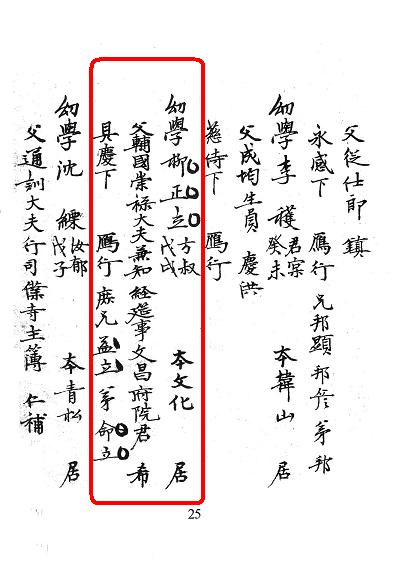 父從仕郎 鎭
永感下 鴈行 兄邦顯 邦彦 弟邦
幼學 李 穫 君寀 癸未 本韓山 居
父成均生員 慶洪
慈侍下 鴈行
幼學 柳正立 方叔 戊戌 本文化 居
父輔國崇祿大夫兼知 經筵事文昌府院君 希
具慶下 鴈行 庶兄 孟立 弟 命立
幼學 沈 練 汝郁 戊子 本靑松 居
父通訓大夫行司僕寺主簿 仁補
25